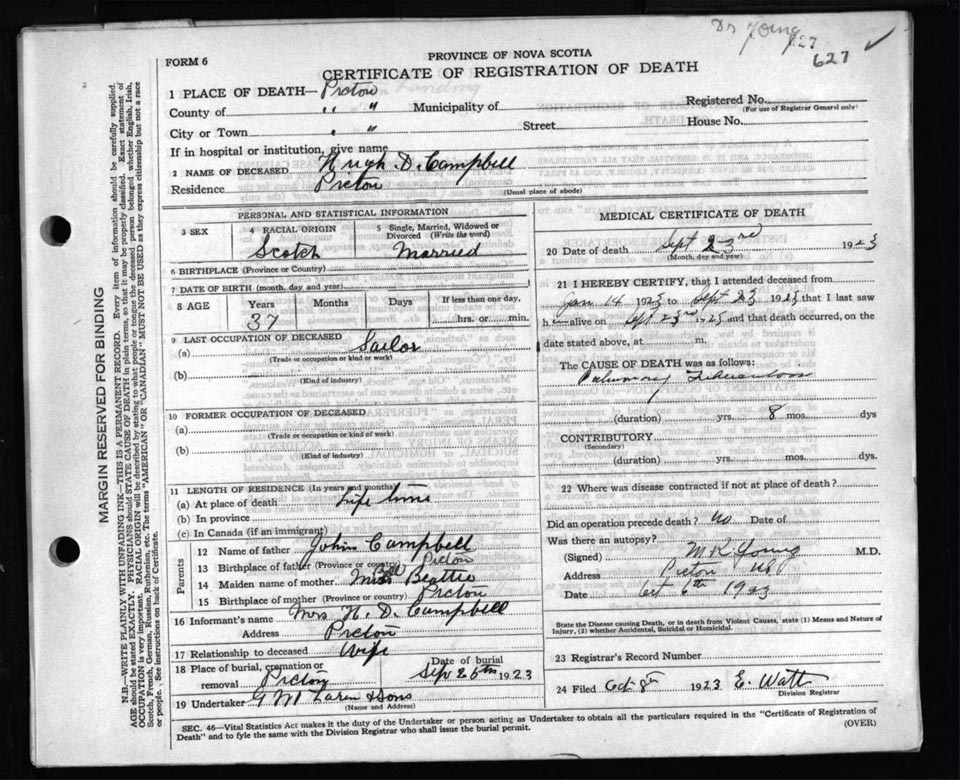 Dr Young
627
627
FORM 6
PROVINCE OF NOVA SCOTIA
CERTIFICATE OF REGISTRATION OF DEATH
1 PLACE OF DEATH— Pictou Landing
County of " " Municipality of Registered No.
(For use of Registrar General only)
City or Town " " Street House No.
If in hospital or institution, give name
2 NAME OF DECEASED Hugh D. Campbell
Residence Pictou
(Usual place of abode)
PERSONAL AND STATISTICAL INFORMATION
3 SEX 4 RACIAL ORIGIN 5 Single, Married, Widowed or Divorced (Write the word)
Scotch Married
6 BIRTHPLACE (Province or Country)
7 DATE OF BIRTH (month, day and year)
8 AGE Years Months Days If less than one day,
37 hrs. or min.
9 LAST OCCUPATION OF DECEASED
(a) Sailor
(Trade or occupation or kind or work)
(b)
(Kind of industry)
10 FORMER OCCUPATION OF DECEASED
(a)
(Trade or occupation or kind or work)
(b)
(Kind of industry)
11 LENGTH OF RESIDENCE (In years and months)
(a) At place of death Life time
(b) In province
(c) In Canada (if an immigrant)
Parents
12 Name of father John Campbell
13 Birthplace of father (Province or country) Pictou
14 Maiden name of mother Miss Bell Beattie
15 Birthplace of mother (Province or country) Pictou
16 Informant's name Mrs H. D. Campbell
Address Pictou
17 Relationship to deceased Wife
18 Place of burial, cremation or removal Pictou Date of burial Sep 25th 1923
19 Undertaker & Sons
(Name and Address)
MEDICAL CERTIFICATE OF DEATH
20 Date of death Sept 23rd 1923
(Month, day and year)
21 I HEREBY CERTIFY, that I attended deceased from
Jan 14 1923 to Sept 23 1923 that I last saw
h alive on Sept 23rd 1923 and that death occurred, on the
date stated above, at m.
The CAUSE OF DEATH was as follows:
Pulmonary Tuberculosis
(duration) yrs. 8 mos. dys
CONTRIBUTORY
(Secondary)
(duration) yrs. mos. dys.
22 Where was disease contracted if not at place of death?
Did an operation precede death? no Date of
Was there an autopsy?
(Signed) M R Young M.D.
Address Pictou NS
Date Oct 6th 1923
State the Disease causing Death, or in death from Violent Causes, state (1) Means and Nature of
Injury, (2) whether Accidental, Suicidal or Homicidal.
23 Registrar's Record Number
24 Filed Oct 8th 1923 E. Watt
Division Registrar
SEC. 46—Vital Statistics Act makes it the duty of the Undertaker or person acting as Undertaker to obtain all the particulars required in the "Certificate of Registration of
Death" and to fyle the same with the Division Registrar who shall issue the burial permit.
(OVER)
MARGIN RESERVED FOR BINDING
N.B.—WRITE PLAINLY WITH UNFADING INK—THIS IS A PERMANENT RECORD. Every item of information should be carefully supplied.
AGE should be stated EXACTLY. PHYSICIANS should STATE CAUSE OF DEATH in plain terms, so that it may be properly classified. Exact statement of
OCCUPATION is very important. RACIAL ORIGIN will be described by stating to what people or tongue the deceased person belonged whether English, Irish,
Scotch, French, German, Russian, Ruthenian, etc. The terms "AMERICAN" OR "CANADIAN" MUST NOT BE USED as they express citizenship but not a race
or people. See instructions on back of Certificate.